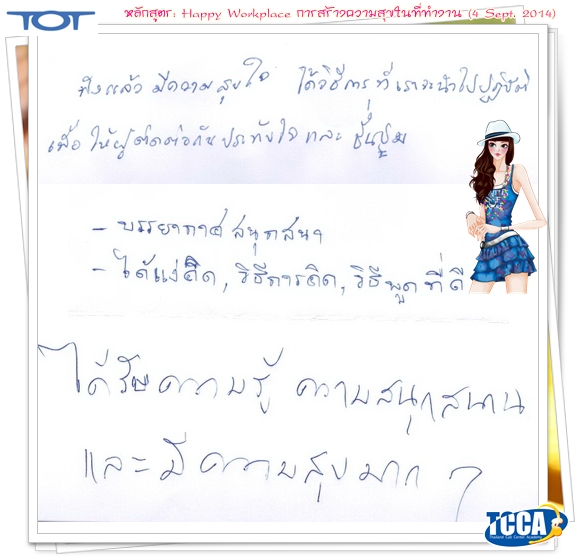 TOT
หลักสูตร: Happy Workplace การสร้างความสุขในที่ทำงาน (4 Sept. 2014)
ฟังแล้ว มีความสุขใจ ได้วิธีการ ที่เราจะนำไปปฏิบัติ
เพื่อ ให้ผู้ติดต่อกันประทับใจ และ ชื่นชม
- บรรยากาศสนุกสนา
- ได้แง่คิด, วิธีการคิด, วิธีพูดที่ดี
ได้รับความรู้ ความสนุกสนาน
และมีความสุขมาก ๆ
TCCA
Thailand Call Center Academy